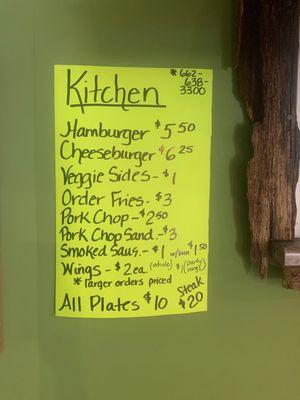 * 662-
638-
3300
Kitchen
Hamburger $5 50
Cheeseburger $6 25
Veggie Sides - $1
Order Fries - $3
Pork Chop - $2 50
Pork Chop Sand. - $3
Smoked Saus. - $1 w/bun $1 50
Wings - $2 ea. (whole) $1 (party wings)
* larger orders priced
Steak
All Plates $10 $20